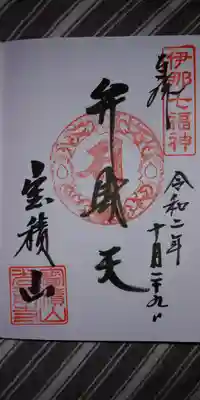 伊那七福神
奉拝
令和二年
十月二十九日
弁財天
宝積山